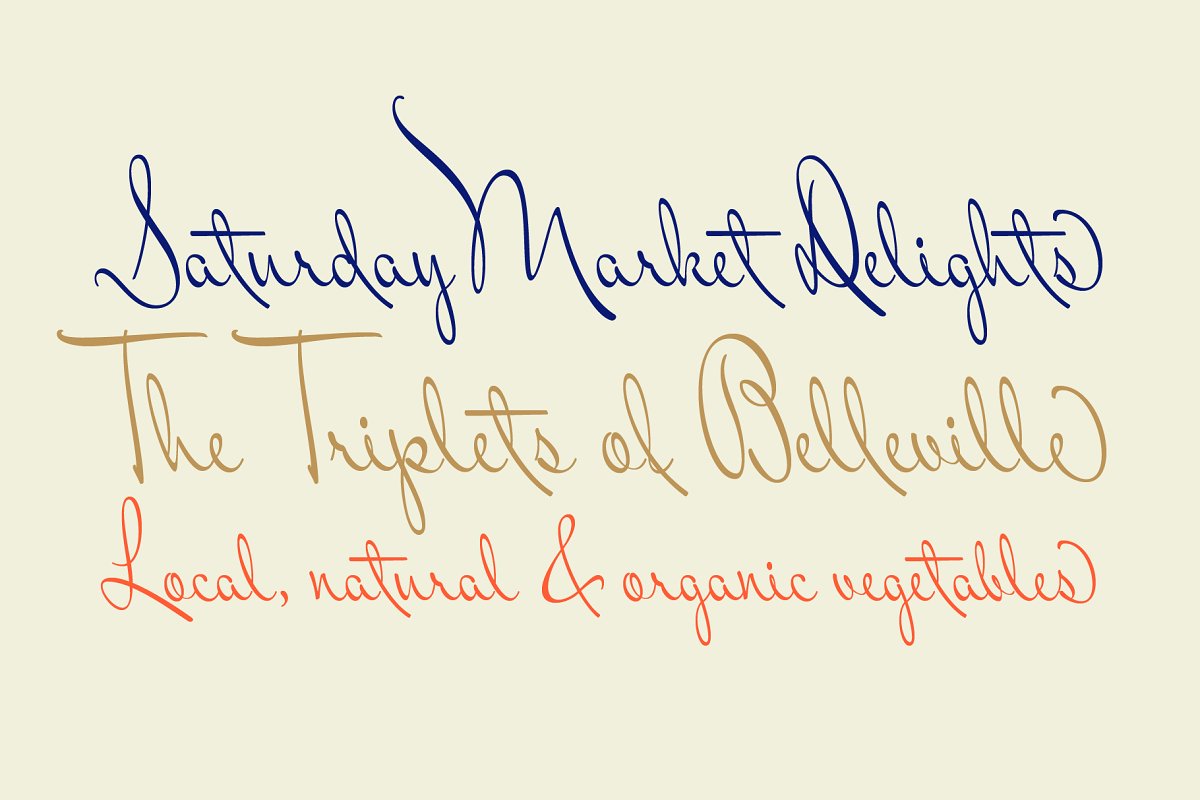 Saturday Market Delights
The Triplets of Belleville
Local, natural & organic vegetables